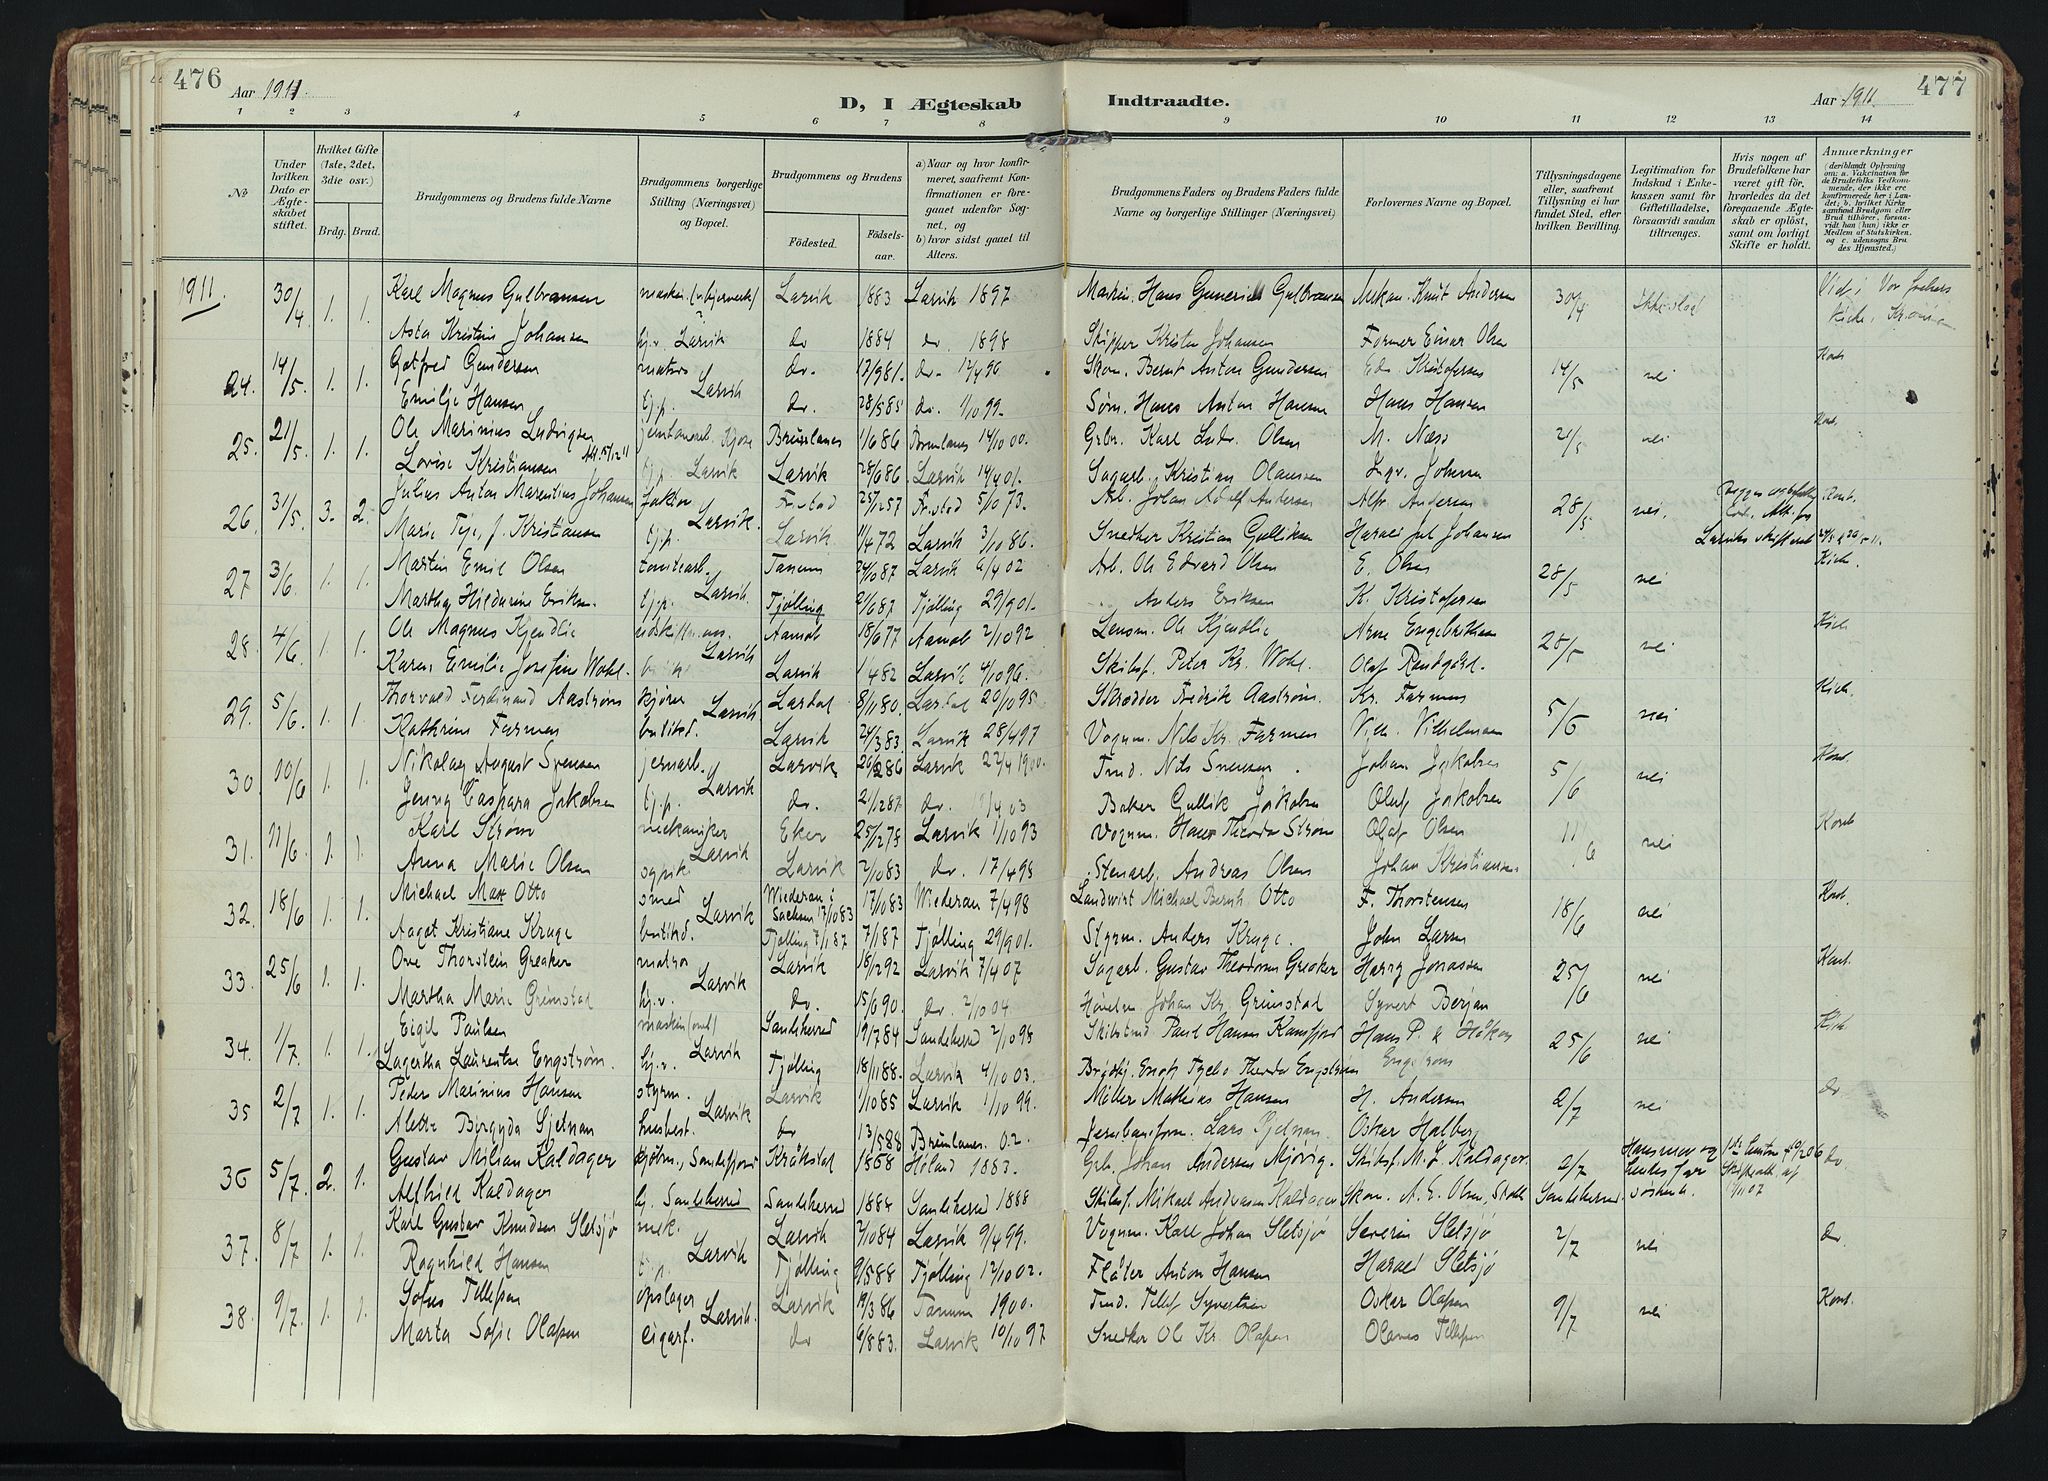 476
Aar 1911
D, I Ægteskab
Indtraadte.
Aar 1911.
477
1 2 3 4 5 6 7 8 9 10 11 12 13 14
No
Under hvilken Dato er Ægteskabet stiftet.
Hvilket Gifte (1ste, 2det, 3die osv.)
Brdg. Brud.
Brudgommens og Brudens fulde Navne
Brudgommens borgerlige Stilling (Næringsvei) og Bopæl.
Brudgommens og Brudens
Fødested.
Fødselsaar.
a) Naar og hvor konfirmeret, saafremt Konfirmationen er foregaaet udenfor Sognet, og
b) hvor sidst gaaet til Alters.
Brudgommens Faders og Brudens Faders fulde Navne og borgerlige Stillinger (Næringsvei)
Forlovernes Navne og Bopæl.
Tillysningsdagene eller, saafremt Tillysning ei har fundet Sted, efter hvilken Bevilling.
Legitimation for Indskud i Enkekassen samt for Giftetilladelse, forsaavidt saadan tiltrænges.
Hvis nogen af Brudefolkene har været gift før, hvorledes da det foregaaende Ægteskab er opløst, samt om lovligt Skifte er holdt.
Anmærkninger (deriblandt Oplysning om: a. Vaccination for de Brudefolks Vedkommende, der ikke ere konfirmerede her i Landet; b. hvilket Kirkesamfund Brudgom eller Brud tilhører, forsaavidt han (hun) ikke er Medlem af Statskirken, og c. udensogns Brudes Hjemsted.)
1911. 30/4. 1. 1. Karl Magnus Gulbransen Larvik 1883 Larvik 1897 Maskin. Hans Gulbransen Mekan. Knut Andersen 30/4 Vor Frelsers Kirke, Kr.
Asta Kristine Johansen hj.v. Larvik do 1884 do. 1898 Skipper Krister Johansen Former Einar Olsen
24. 14/5. 1. 1. Gotfred Gundersen matros Larvik do. 17/981. do. 12/496 Skom. Bernt Anton Gundersen Ed. Kristofersen 14/5 nei Kont.
Emilie Hansen tj.p. do. 28/585 do. 1/1099. Søm. Hans Anton Hansen Hans Hansen
25. 21/5. 1. 1. Ole Marinius Ludvigsen Kjose Brunlanes 1/686 Brunlanes 14/1000. Grbr. Karl Ludv. Olsen M. Næss 21/5 nei Kont.
Lovise Kristiansen tj.p. Larvik Larvik 28/686 Larvik 14/401. Sagarb. Kristian Olausen Ingv. Johnsen
26. 31/5. 3. 2. Julius Anton Marentius Johansen faktor Larvik. Fr.stad 25/1257 Fr.stad 5/1073. Arb. Johan Adolf Andersen Alfr. Andersen 28/5 nei. Kont.
Marie f. Kristiansen tj.p. Larvik 11/472 Larvik 3/1086. Snedker Kristian Gulliksen Harald Jul. Johansen Larviks skifteret
27. 3/6. 1. 1. Martin Emil Olsen tomtearb. Larvik. Tanum 24/1087 Larvik 6/402 Arb. Ole Edvard Olsen E. Olsen 28/5 nei Kirk.
Martha Hildurine Eriksen. tj.p. Tjølling 21/687 Tjølling 29/901. Anders Eriksen K. Kristofersen
28. 4/6. 1. 1. Ole Magnus Kjendlie Larvik Aamot 18/677 Aamot 2/1092 Lensm. Ole Kjendlie Arne Engebretsen 28/5 nei Kirk.
Karen Emilie Josefine Wohl. Larvik 1/482 Larvik 4/1096. Skibsf. Peter Kr. Wohl Olaf Rundgård.
29. 5/6. 1. 1. Thorvald Ferdinand Aastrøm kjører Larvik. Lardal 8/1180. Lardal 20/1095 Skrædder Fredrik Aastrøm. Kr. Farmen 5/6 nei Kirk.
Kathrine Farmen butikd. Larvik 24/383 Larvik 28/497 Vognm. Nils Kr. Farmen Vilh. Vilhelmsen
30. 10/6 1. 1. Nikolay August Svensen jernarb. Larvik Larvik 20/286 Larvik 22/41900. Tmd. Nils Svensen. Johan Jakobsen 5/6 nei Kont.
Jenny Caspara Jakobsen tj.p. do. 21/1287 do. 403 Baker Gullik Jakobsen Oluf Jakobsen
31. 11/6. 1. 1. Karl Strøm mekaniker Larvik Eker 25/1278 Larvik 1/1093 Vognm. Hans Theodor Strøm Olaf Olsen 11/6 nei Kont.
Anna Marie Olsen sypike Larvik 2/1083 do. 17/498 Stenarb. Andreas Olsen Johan Kristiansen
32. 18/6 1. 1. Michael Max Otto smed Larvik Wiederau i Sachsen 17/1083 17/1083 Wiederau 7/498 Landwirt Michael Bernh. Otto F. Thorstensen 18/6 nei Kont.
Aagot Kristiane Kruge butikd. Tjølling 7/187 7/187 Tjølling 29/901. Styrm. Anders Kruge. John Larsen
33. 25/6 1. 1. Ove Thorstein Greaker matros Larvik Larvik 18/292 Larvik 7/407 Sagarb. Gustav Theodor Greaker Harry Jonassen 25/6 nei Kont.
Martha Marie Grimstad hj.v. do. 15/690. do. 2/1004. Johan Kr. Grimstad Syvert Berjan
34. 1/7. 1. 1. Eigil Paulsen Larvik Sandeherred 19/784 Sandeherred 2/1098 Skibstmd. Paul Hansen Kamfjord Hans P. & Håkon Engstrøm 25/6 nei Kirk
Lagertha Laurentse Engstrøm. hj.v. Tjølling 18/1188. Larvik 4/1003. Tycho Theodor Engstrøm
35 2/7 1. 1. Peder Marinius Hansen styrm. Larvik Larvik 1/1085 Larvik 1/1099. Møller Mathias Hansen H. Andersen 2/7 nei do
Alette Birgyda Sjetnan husbest. do 13/588 Brunlanes. 02. Jernbaneform. Lars Sjetnan. Oskar Halberg
36 5/7. 2. 1. Gustav Milian Kaldager Sandefjord Kråkstad 1858 Høland 1883. Grb. Johan Andersen Mjøvig. Skibsf. M. L. Kaldager. 2/7 Sandeherred do.
Alfhild Kaldager hj. Sandeherred Sandeherred 1884 Sandeherred 1888 Skibsf. Mikael Andreasen Kaldager Skom. A. E. Olsen,
37. 8/7. 1. 1. Karl Gustav Knudsen Sletsjø mek. Larvik Larvik 2/1084 Larvik 9/499. Vognm. Karl Johan Sletsjø Severin Sletsjø 2/7 nei do.
Ragnhild Hansen tj.p. Tjølling 9/588 Tjølling 12/1002. Fløter Anton Hansen Harald Sletsjø
38. 9/7. 1. 1. Sofus Tellefsen opslager Larvik. Larvik 19/386 Tanum 1900. Tmd. Tellef Syvertsen Oskar Olafsen 9/7 nei Kont.
Marta Sofie Olafsen cigarf. do 6/883. Larvik 10/1097 Snedker Ole Kr. Olafsen Olaves Tellefsen